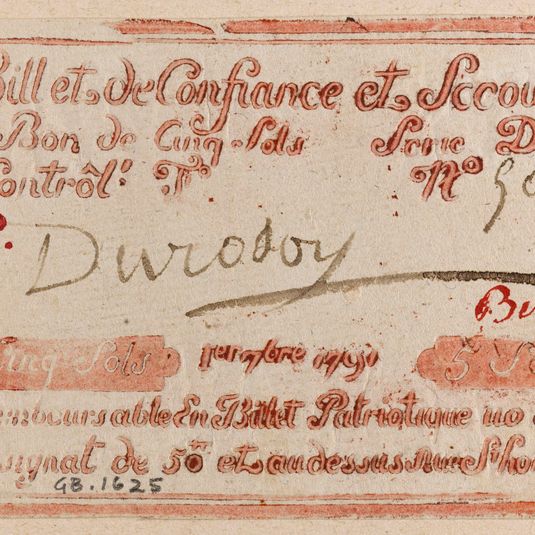 Billet de Confiance et Secou
Bon de Cinq Sols Serie D
Contrôl. T. N.o
Durosoy
Cinq Sols 5 S
emboursable En Billet Patriotique
signat de 5₶ et audessus Rue St hon
GB.1625